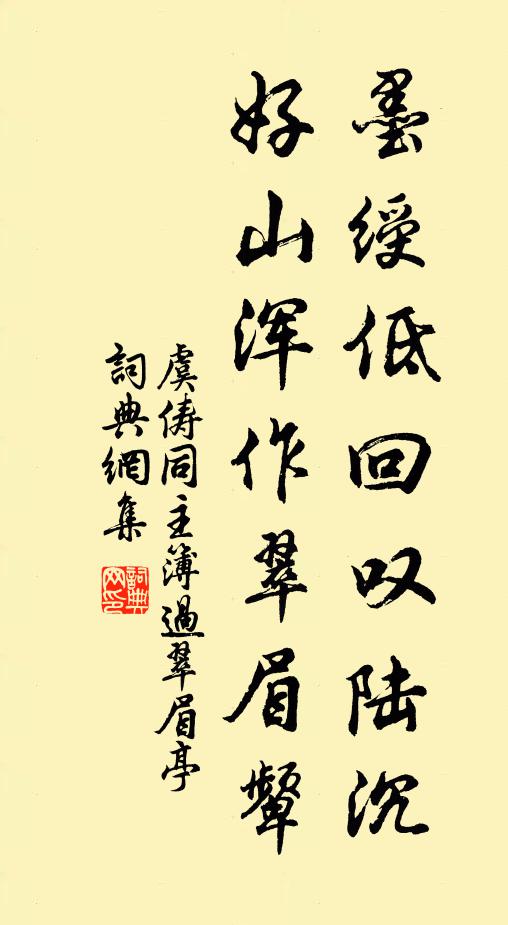 墨绶低回叹陆沉
好山浑作翠眉颦
虞俦同主簿過翠眉亭
詞典網集
詞典
网印